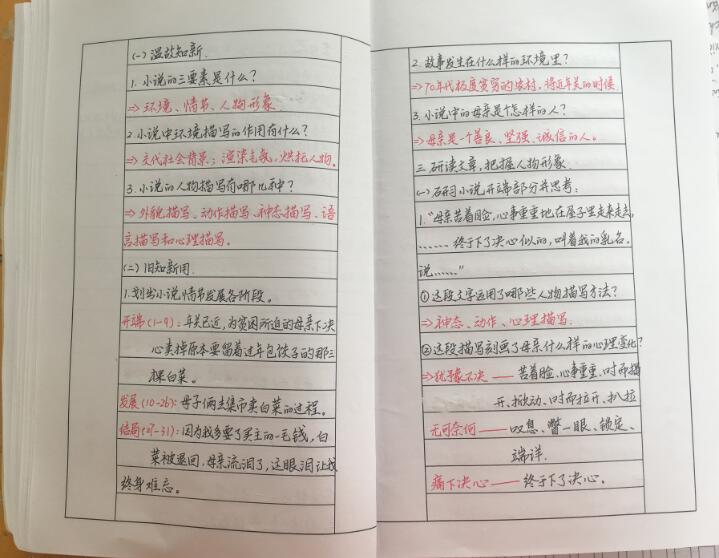 (一) 温故知新.
1. 小说的三要素是什么?
⇒ 环境、情节、人物形象
2. 小说中环境描写的作用有什么?
⇒ 交代社会背景；渲染气氛，烘托人物。
3. 小说的人物描写有哪几种?
⇒ 外貌描写、动作描写、神态描写、语
言描写和心理描写。
(二) 旧知新用.
1. 划出小说情节发展各阶段。
开端(1-9)：年关已近，为贫困所迫的母亲下决
心卖掉原本要留着过年包饺子的那三
棵白菜。
发展(10-26)：母子俩去集市卖白菜的过程。
结局(27-31)：因为我多要了买主的一毛钱，白
菜被退回，母亲流泪了，这眼泪让我
终身难忘。
2. 故事发生在什么样的环境里?
⇒70年代极度贫穷的农村，将近年关的时候
3. 小说中的母亲是个怎样的人?
⇒ 母亲是一个善良、坚强、诚信的人。
三. 研读文章，把握人物形象
(一) 研读小说开端部分并思考：
1. "母亲苦着脸，心事重重地在屋子里走来走去，
…… 终于下了决心似的，叫着我的乳名，
说……"
① 这段文字运用了哪些人物描写方法?
⇒ 神态、动作、心理描写.
② 这段描写刻画了母亲什么样的心理变化?
⇒犹豫不决 —— 苦着脸、心事重重、时而揭
开、掀动、时而拉开、扒拉
无可奈何 —— 叹息、瞥一眼、锁定、
端详.
痛下决心 —— 终于下了决心。